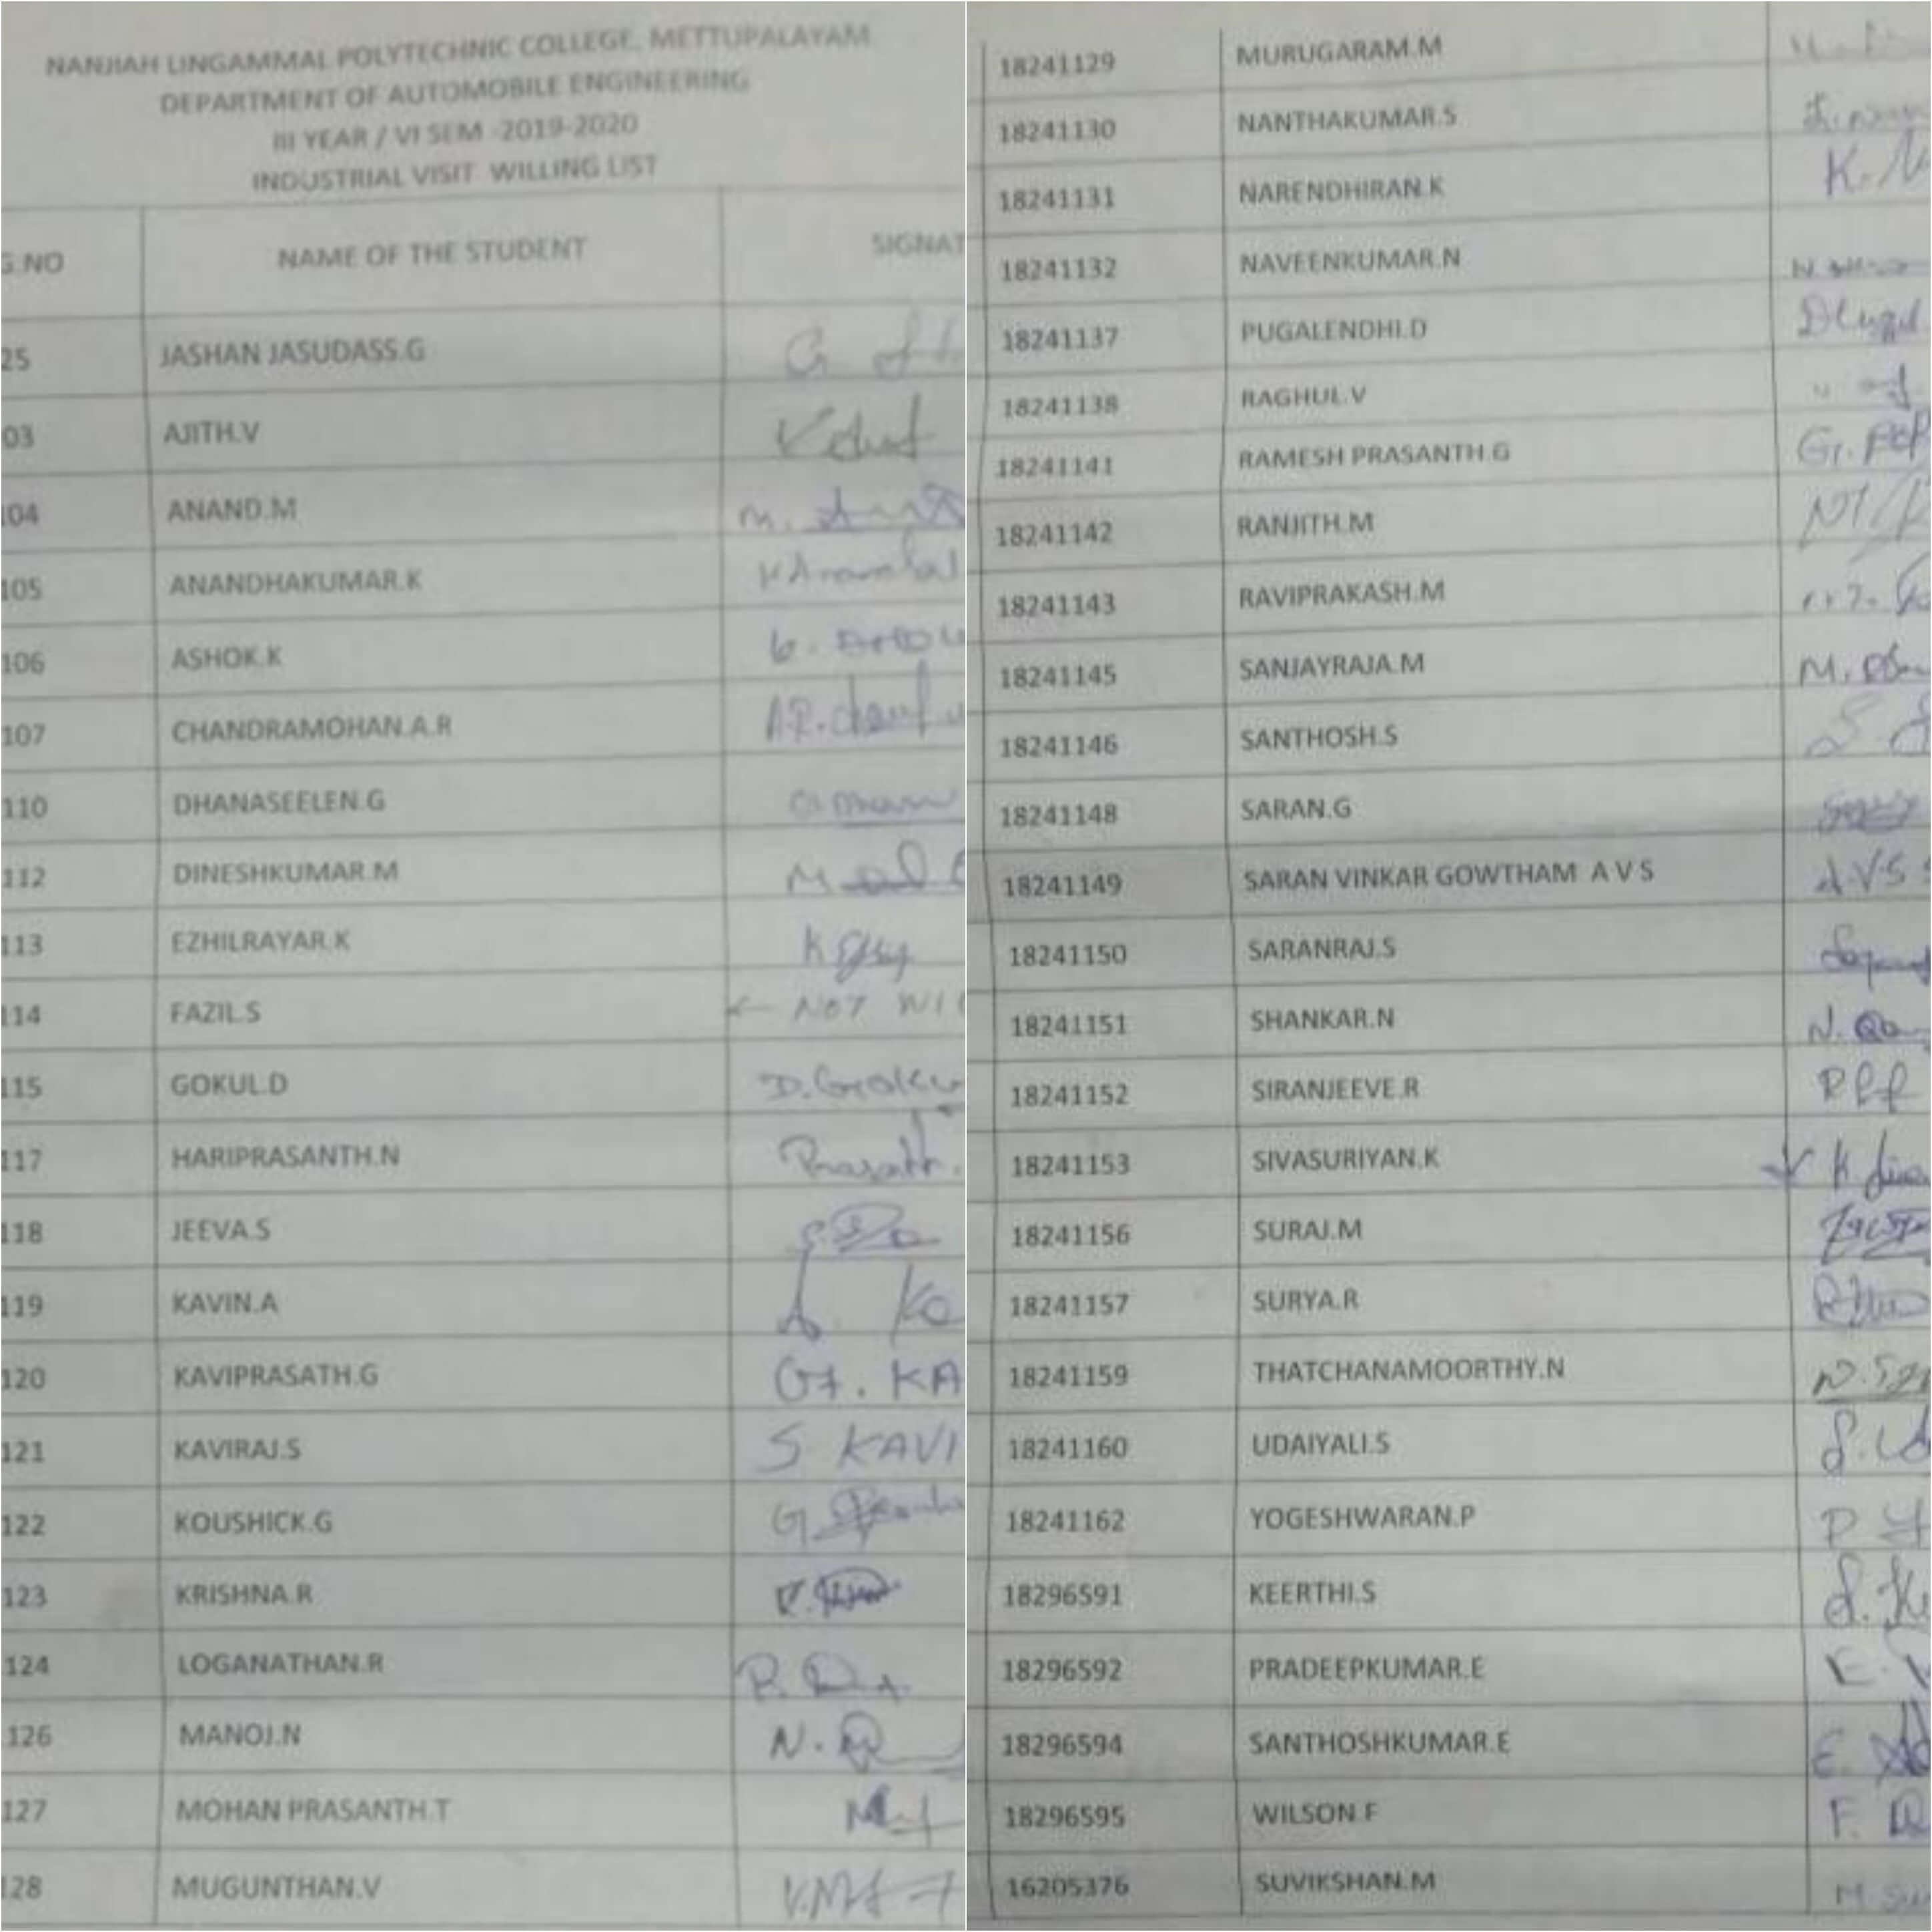 NANJIAH LINGAMMAL POLYTECHNIC COLLEGE, METTUPALAYAM
DEPARTMENT OF AUTOMOBILE ENGINEERING
III YEAR / VI SEM -2019-2020
INDUSTRIAL VISIT WILLING LIST
G.NO NAME OF THE STUDENT SIGNAT
25 JASHAN JASUDASS.G
03 AJITH.V
104 ANAND.M
105 ANANDHAKUMAR.K
106 ASHOK.K
107 CHANDRAMOHAN.A.R
110 DHANASEELEN.G
112 DINESHKUMAR.M
113 EZHILRAYAR.K
114 FAZIL.S NOT WIL
115 GOKUL.D D.Goku
117 HARIPRASANTH.N Prasath.
118 JEEVA.S
119 KAVIN.A
120 KAVIPRASATH.G G. KA
121 KAVIRAJ.S S KAVI
122 KOUSHICK.G
123 KRISHNA.R
124 LOGANATHAN.R
126 MANOJ.N
127 MOHAN PRASANTH.T
128 MUGUNTHAN.V
18241129 MURUGARAM.M
18241130 NANTHAKUMAR.S
18241131 NARENDHIRAN.K
18241132 NAVEENKUMAR.N
18241137 PUGALENDHI.D
18241138 RAGHUL.V
18241141 RAMESH PRASANTH.G
18241142 RANJITH.M
18241143 RAVIPRAKASH.M
18241145 SANJAYRAJA.M
18241146 SANTHOSH.S
18241148 SARAN.G
18241149 SARAN VINKAR GOWTHAM A V S A.V.S
18241150 SARANRAJ.S
18241151 SHANKAR.N
18241152 SIRANJEEVE.R
18241153 SIVASURIYAN.K
18241156 SURAJ.M
18241157 SURYA.R
18241159 THATCHANAMOORTHY.N
18241160 UDAIYALI.S
18241162 YOGESHWARAN.P
18296591 KEERTHI.S
18296592 PRADEEPKUMAR.E
18296594 SANTHOSHKUMAR.E
18296595 WILSON.F
16205376 SUVIKSHAN.M